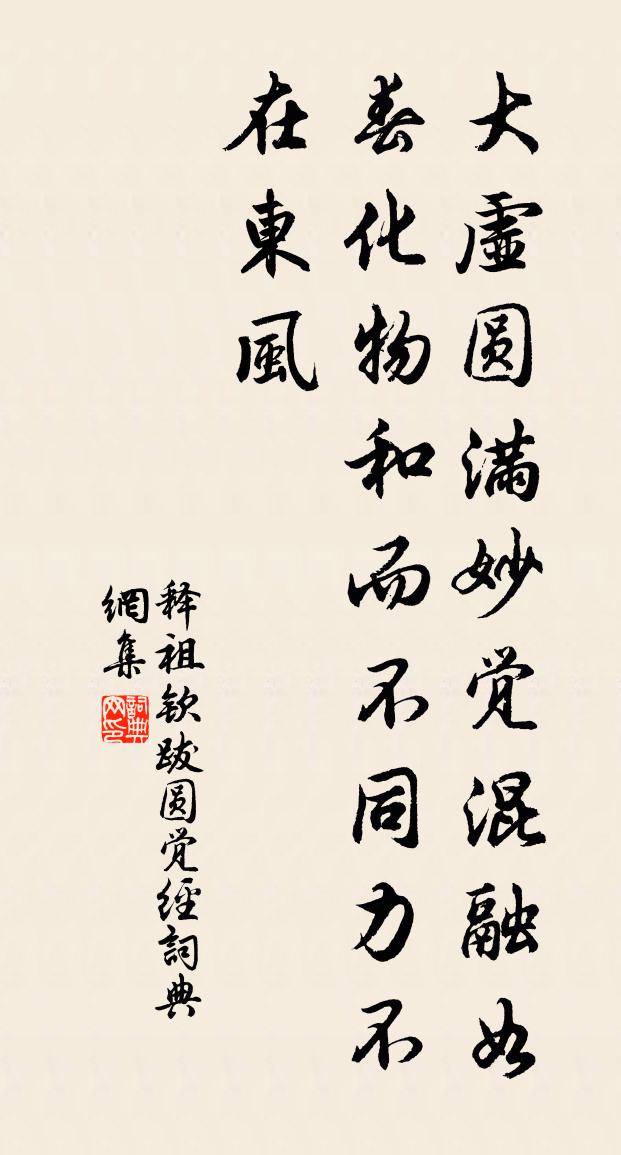 大虛圆满妙觉混融如
春化物和而不同力不
在東風
释祖钦跋圆觉經詞典
網集
詞典
网印